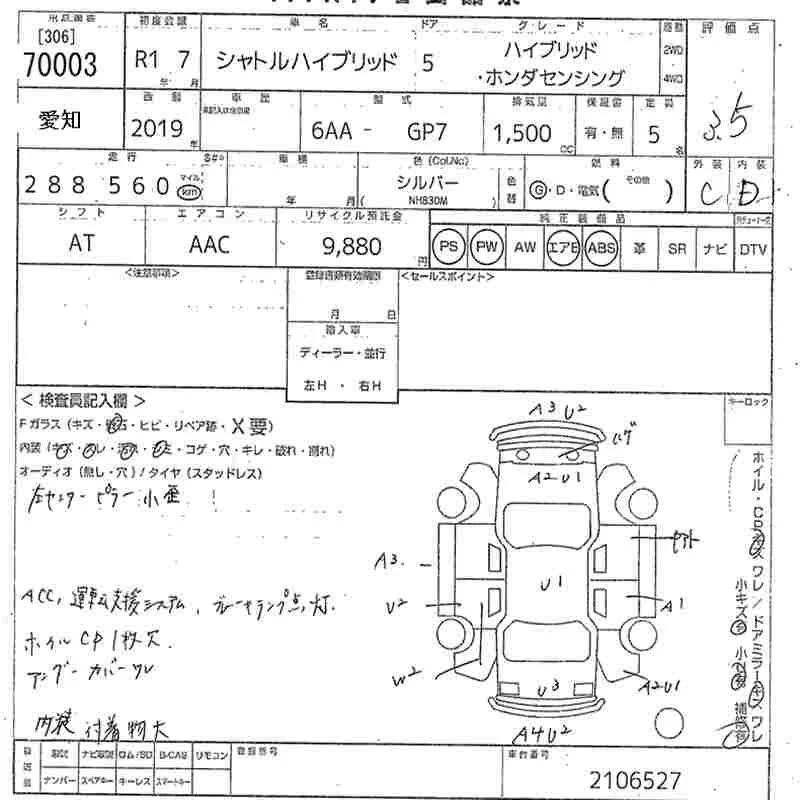 車名 ドア グレード 評価点
[306]
70003
初度登録
R1 7
年 月
シャトルハイブリッド 5
ハイブリッド
・ホンダセンシング
2WD
4WD
3.5
愛知
2019
年
車歴
型式
6AA - GP7
排気量
1,500 CC
保証書
有・無
定員
5 名
外装 内装
C D
走行
288560
マイル
km
車検
年 月
色 (Col.No)
シルバー
( NH830M )
色替
燃料
G・D・電気( その他 )
シフト
AT
エアコン
AAC
リサイクル預託金
9,880 円
純正装備品
PS PW AW エアB ABS 革 SR ナビ DTV
<注意事項>
月 日
輸入車
ディーラー・並行
左H ・ 右H
<セールスポイント>
<検査員記入欄>
Fガラス (キズ・飛石・ヒビ・リペア跡・X要)
内装 (キズ・ヨレ・汚れ・シミ・コゲ・穴・キレ・破れ・割れ)
オーディオ (無し・穴) / タイヤ (スタッドレス)
左センターピラー小歪
ACC, 運転支援システム, ブレーキランプ点灯.
ホイルCP1枚欠.
アンダーカバーワレ
内装 付着物大
キーロック
A3 U2
ハゲ
A2U1
A3.
U1
U2
A1
W2
U3
A2U1
A4U2
ホイル・CPキズ ワレ / ドアミラーキズ ワレ
小キズ多 小凹多 補修有
ナビ取説 ロム/SD B-CAS リモコン
ナンバー スペアキー キーレス スマートキー
登録番号
車台番号
2106527